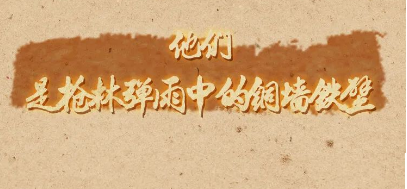 他们
是枪林弹雨中的铜墙铁壁